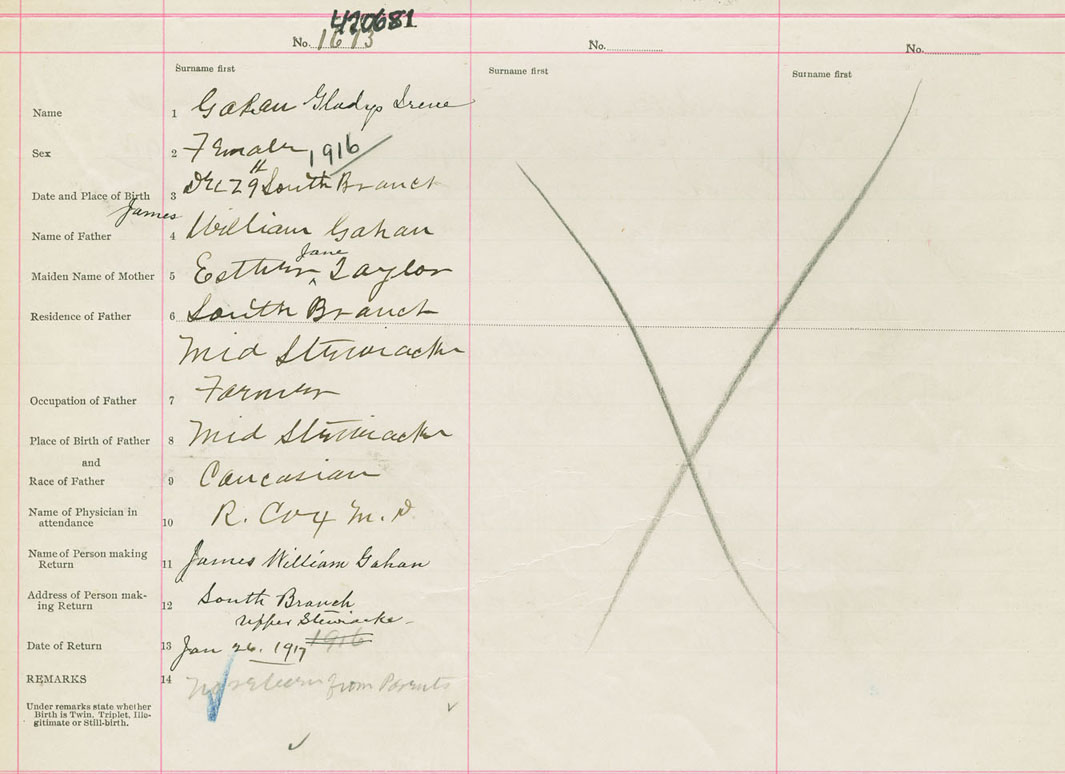 420681
No. 1673
No.
No.
Surname first
Surname first
Surname first
Name 1 Gahan Gladys Irene
Sex 2 Female 1916
Date and Place of Birth 3 Dec 29th South Branch
James
Name of Father 4 William Gahan
Jane
Maiden Name of Mother 5 Esther ^ Taylor
Residence of Father 6 South Branch
Mid Stewiacke
Occupation of Father 7 Farmer
Place of Birth of Father 8 Mid Stewiacke
and
Race of Father 9 Caucasian
Name of Physician in
attendance 10 R. Cox M.D.
Name of Person making
Return 11 James William Gahan
Address of Person mak-
ing Return 12 South Branch
Upper Stewiacke
Date of Return 13 Jan 26. 1917 1916
REMARKS 14 No return from Parents
Under remarks state whether
Birth is Twin, Triplet, Ille-
gitimate or Still-birth.